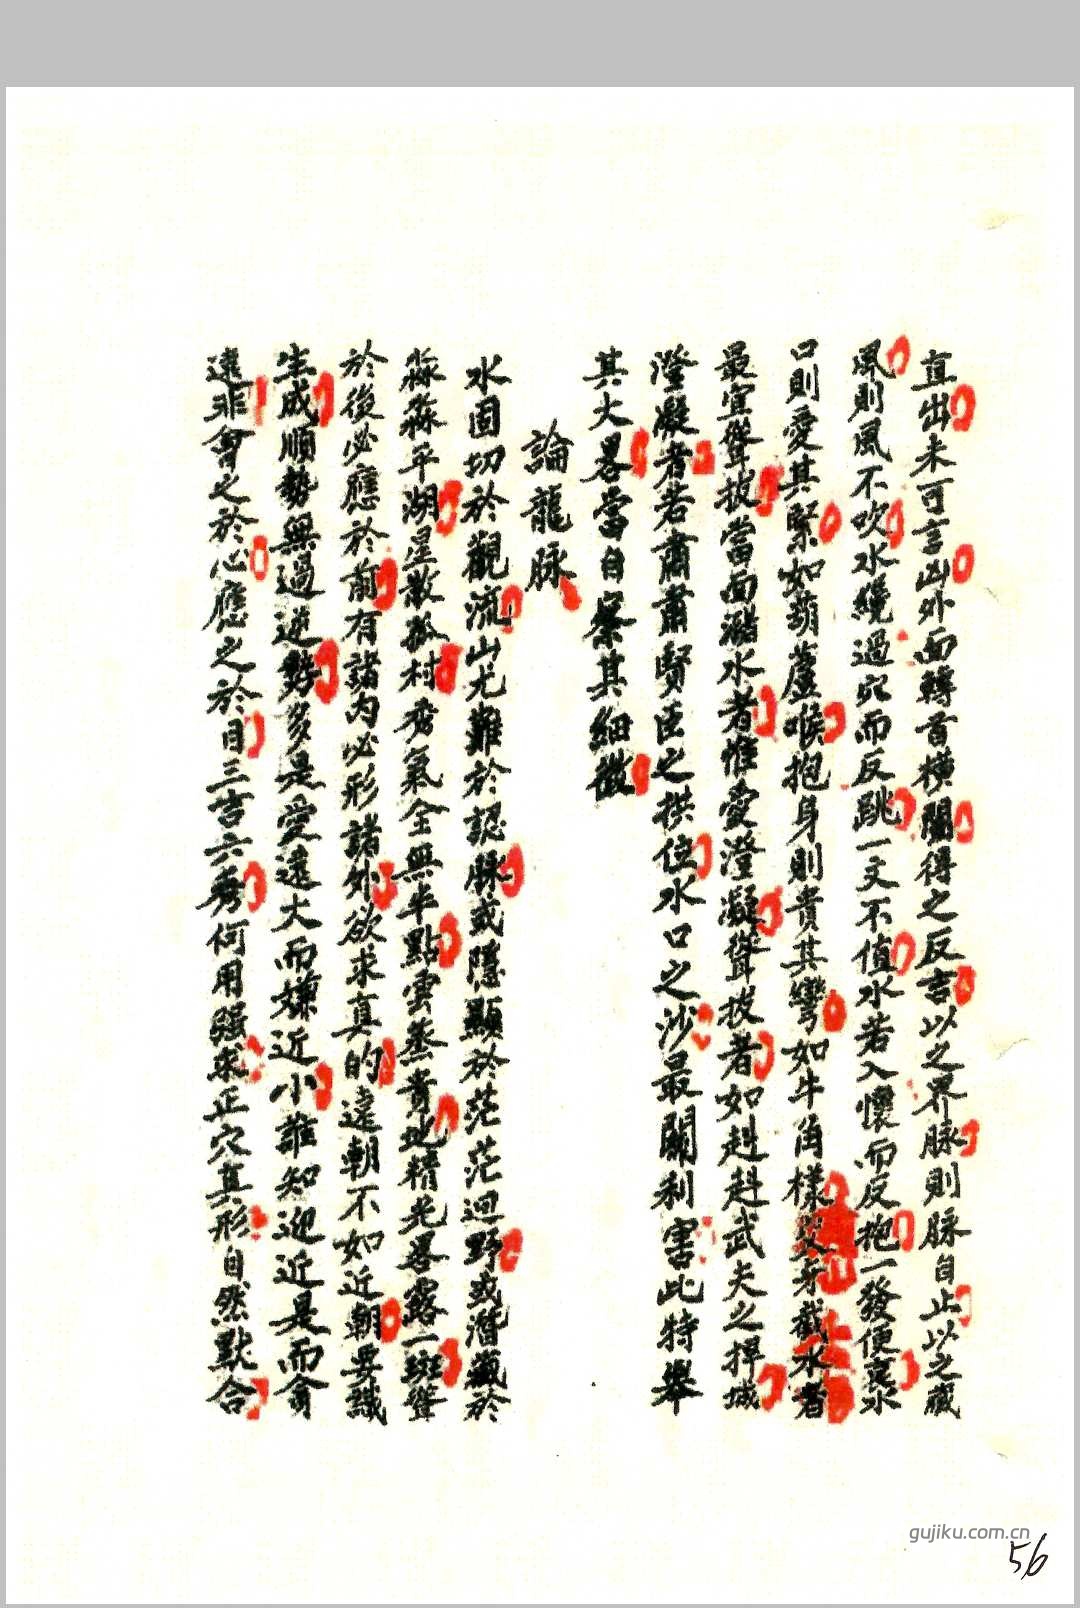 直出未可言凶外面轉首橫闌得之反吉以之界脉則脉自止以之藏
風則風不吹水繞過穴而反跳一文不值水若入懷而反抱一發便富水
口則愛其緊如葫蘆喉抱身則貴其彎如牛角樣交牙截水者
最宜聳拔當面瀦水者惟愛澄凝聳拔者如赳赳武夫之捍城
澄凝者若肅肅賢臣之拱位水口之沙最關利害此特舉
其大畧當自察其細微
論龍脉
水固切於觀流山尤難於認脉或隱顯於茫茫迥野或潛藏於
淼淼平湖星散孤村秀氣全無半點雲蒸青地精光畧露一斑聳
於後必應於前有諸内必形諸外欲求真的遠朝不如近朝要識
生成順勢無過逆勢多是愛遠大而嫌近小誰知迎近是而貪
遠非會之於心應之於目三吉六秀何用强求正穴真形自然默合
gujiku.com.cn
56